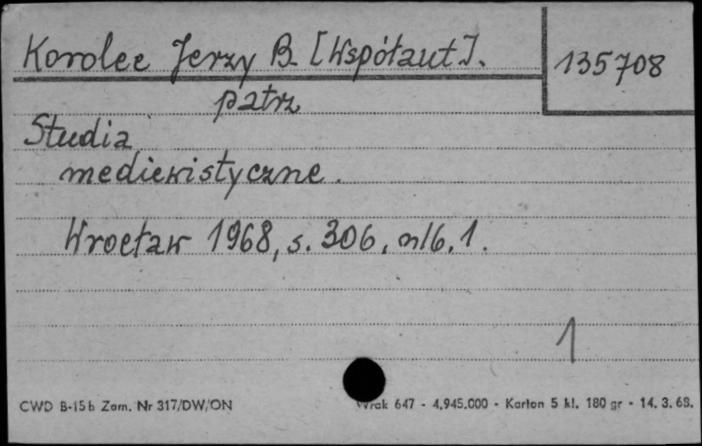 Korolec Jerzy B. [Współaut].
135708
patrz
Studia
mediewistyczne.
Wrocław 1968, s. 306, nlb. 1.
1
CWD B-15b Zam. Nr 317/DW/ON
Wrak 647 - 4.945.000 - Karton 5 kl. 180 gr - 14. 3. 68.